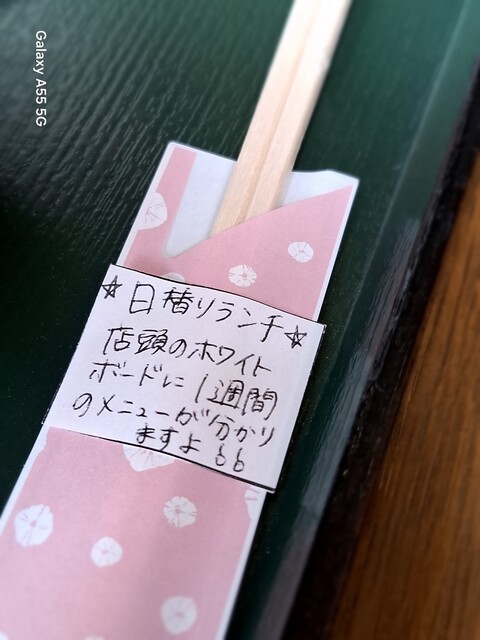 Galaxy A55 5G
☆日替りランチ☆
店頭のホワイト
ボードに1週間
のメニューが分かり
ますよ♭♭